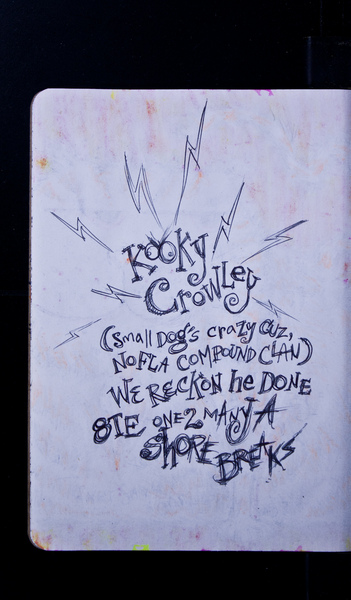 Kooky
Crowley
(small Dog's crazy cuz,
NOFLA COMPOUND CLAN)
WE RECK'ON he DONE
8TE ONE 2 MANY A
SHORE
BREAKS